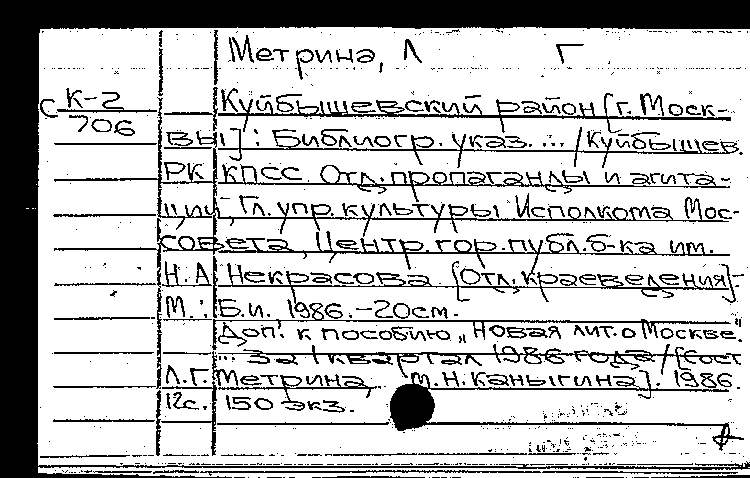 Метрина, Л Г
С К-2 Куйбышевский район [г. Моск-
706 вы] : Библиогр. указ. ... / Куйбышев.
РК КПСС. Отд. пропаганды и агита-
ции, Гл. упр. культуры Исполкома Мос-
совета, Центр. гор. публ. б-ка им.
Н.А. Некрасова (Отд. краеведения].-
М.: Б.и. 1986.-20см.
Доп. к пособию „Новая лит. о Москве."
... за I квартал 1986 года / [Сост
Л.Г. Метрина, М.Н. Каныгина]. 1986.
12с. 150 экз.